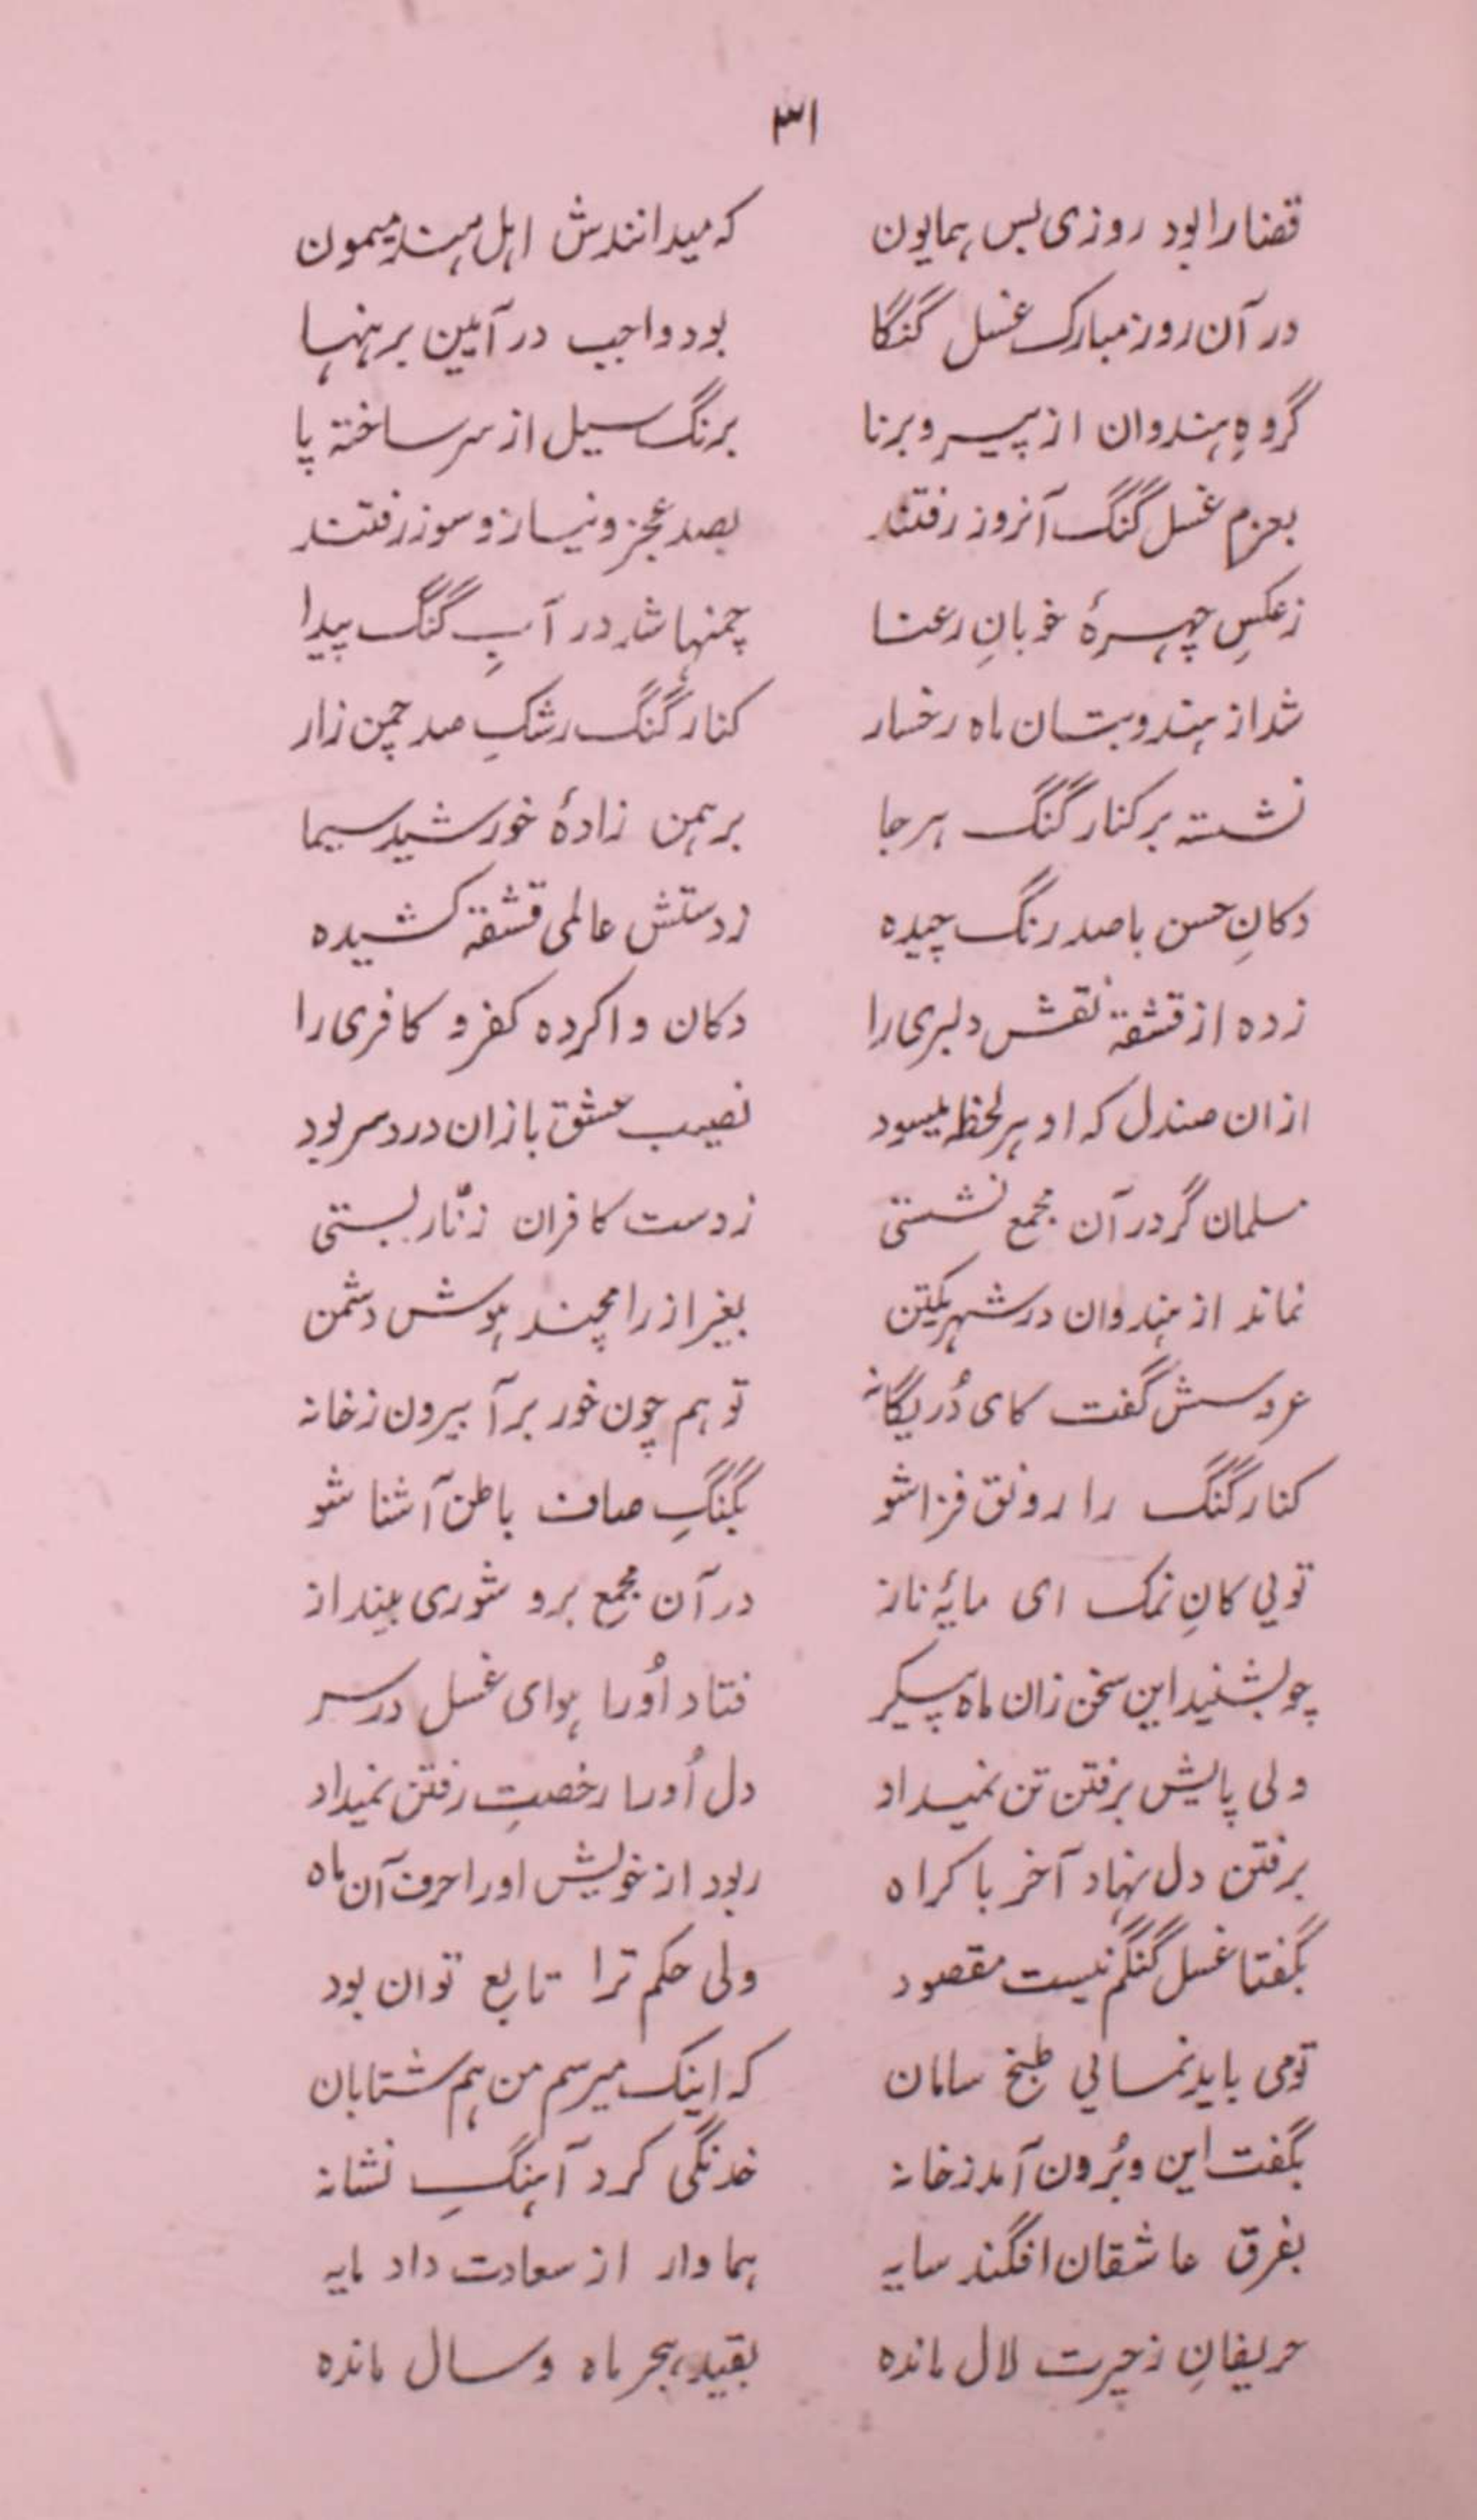 ۳۱
قضا را بود روزی بس همایون که میدانندش اهل هند میمون
در آن روز مبارک غسل گنگا بود واجب در آیین برهنها
گروهِ هندوان از پیر و برنا برنگ سیل از سر ساخته پا
بعزم غسل گنگ آنروز رفتند بصد عجز و نیاز و سوز رفتند
ز عکسِ چهرهٔ خوبانِ رعنا چمنها شد در آبِ گنگ پیدا
شد از هندو بتان ماه رخسار کنار گنگ رشکِ صد چمن زار
نشسته بر کنار گنگ هر جا برهمن زادهٔ خورشید سیما
دکانِ حسن با صد رنگ چیده ز دستش عالمی قشقه کشیده
زده از قشقه نقش دلبری را دکان وا کرده کفر و کافری را
ازان صندل که او هر لحظه میسود نصیب عشق بازان درد سر بود
مسلمان گر در آن مجمع نشستی ز دست کافران زنّار بستی
نماند از هندوان در شهر یکتن بغیر از رامچند هوش دشمن
عروسش گفت کای دُر یگانه تو هم چون خور برآ بیرون ز خانه
کنار گنگ را رونق فزا شو بگنگِ صاف باطن آشنا شو
تویی کانِ نمک ای مایهٔ ناز در آن مجمع برو شوری بینداز
چو بشنید این سخن زان ماه پیکر فتاد اُو را هوای غسل در سر
ولی پایش برفتن تن نمیداد دل اُو را رخصتِ رفتن نمیداد
برفتن دل نهاد آخر باکراه ربود از خویش او را حرف آن ماه
بگفتا غسل گنگم نیست مقصود ولی حکم ترا تابع توان بود
تو می باید نمایی طبخ سامان که اینک میرسم من هم شتابان
بگفت این و بُرون آمد ز خانه خدنگی کرد آهنگِ نشانه
بفرق عاشقان افگند سایه هما وار از سعادت داد مایه
حریفانِ ز حیرت لال مانده بقید هجر ماه و سال مانده